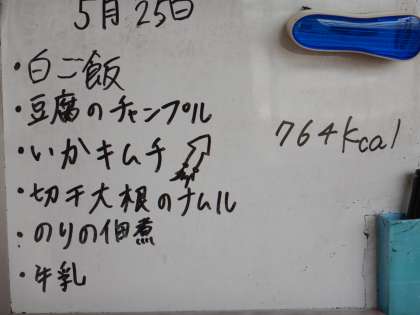 5月25日
・白ご飯
・豆腐のチャンプル
・いかキムチ
・切干大根のナムル
・のりの佃煮
・牛乳
764kcal